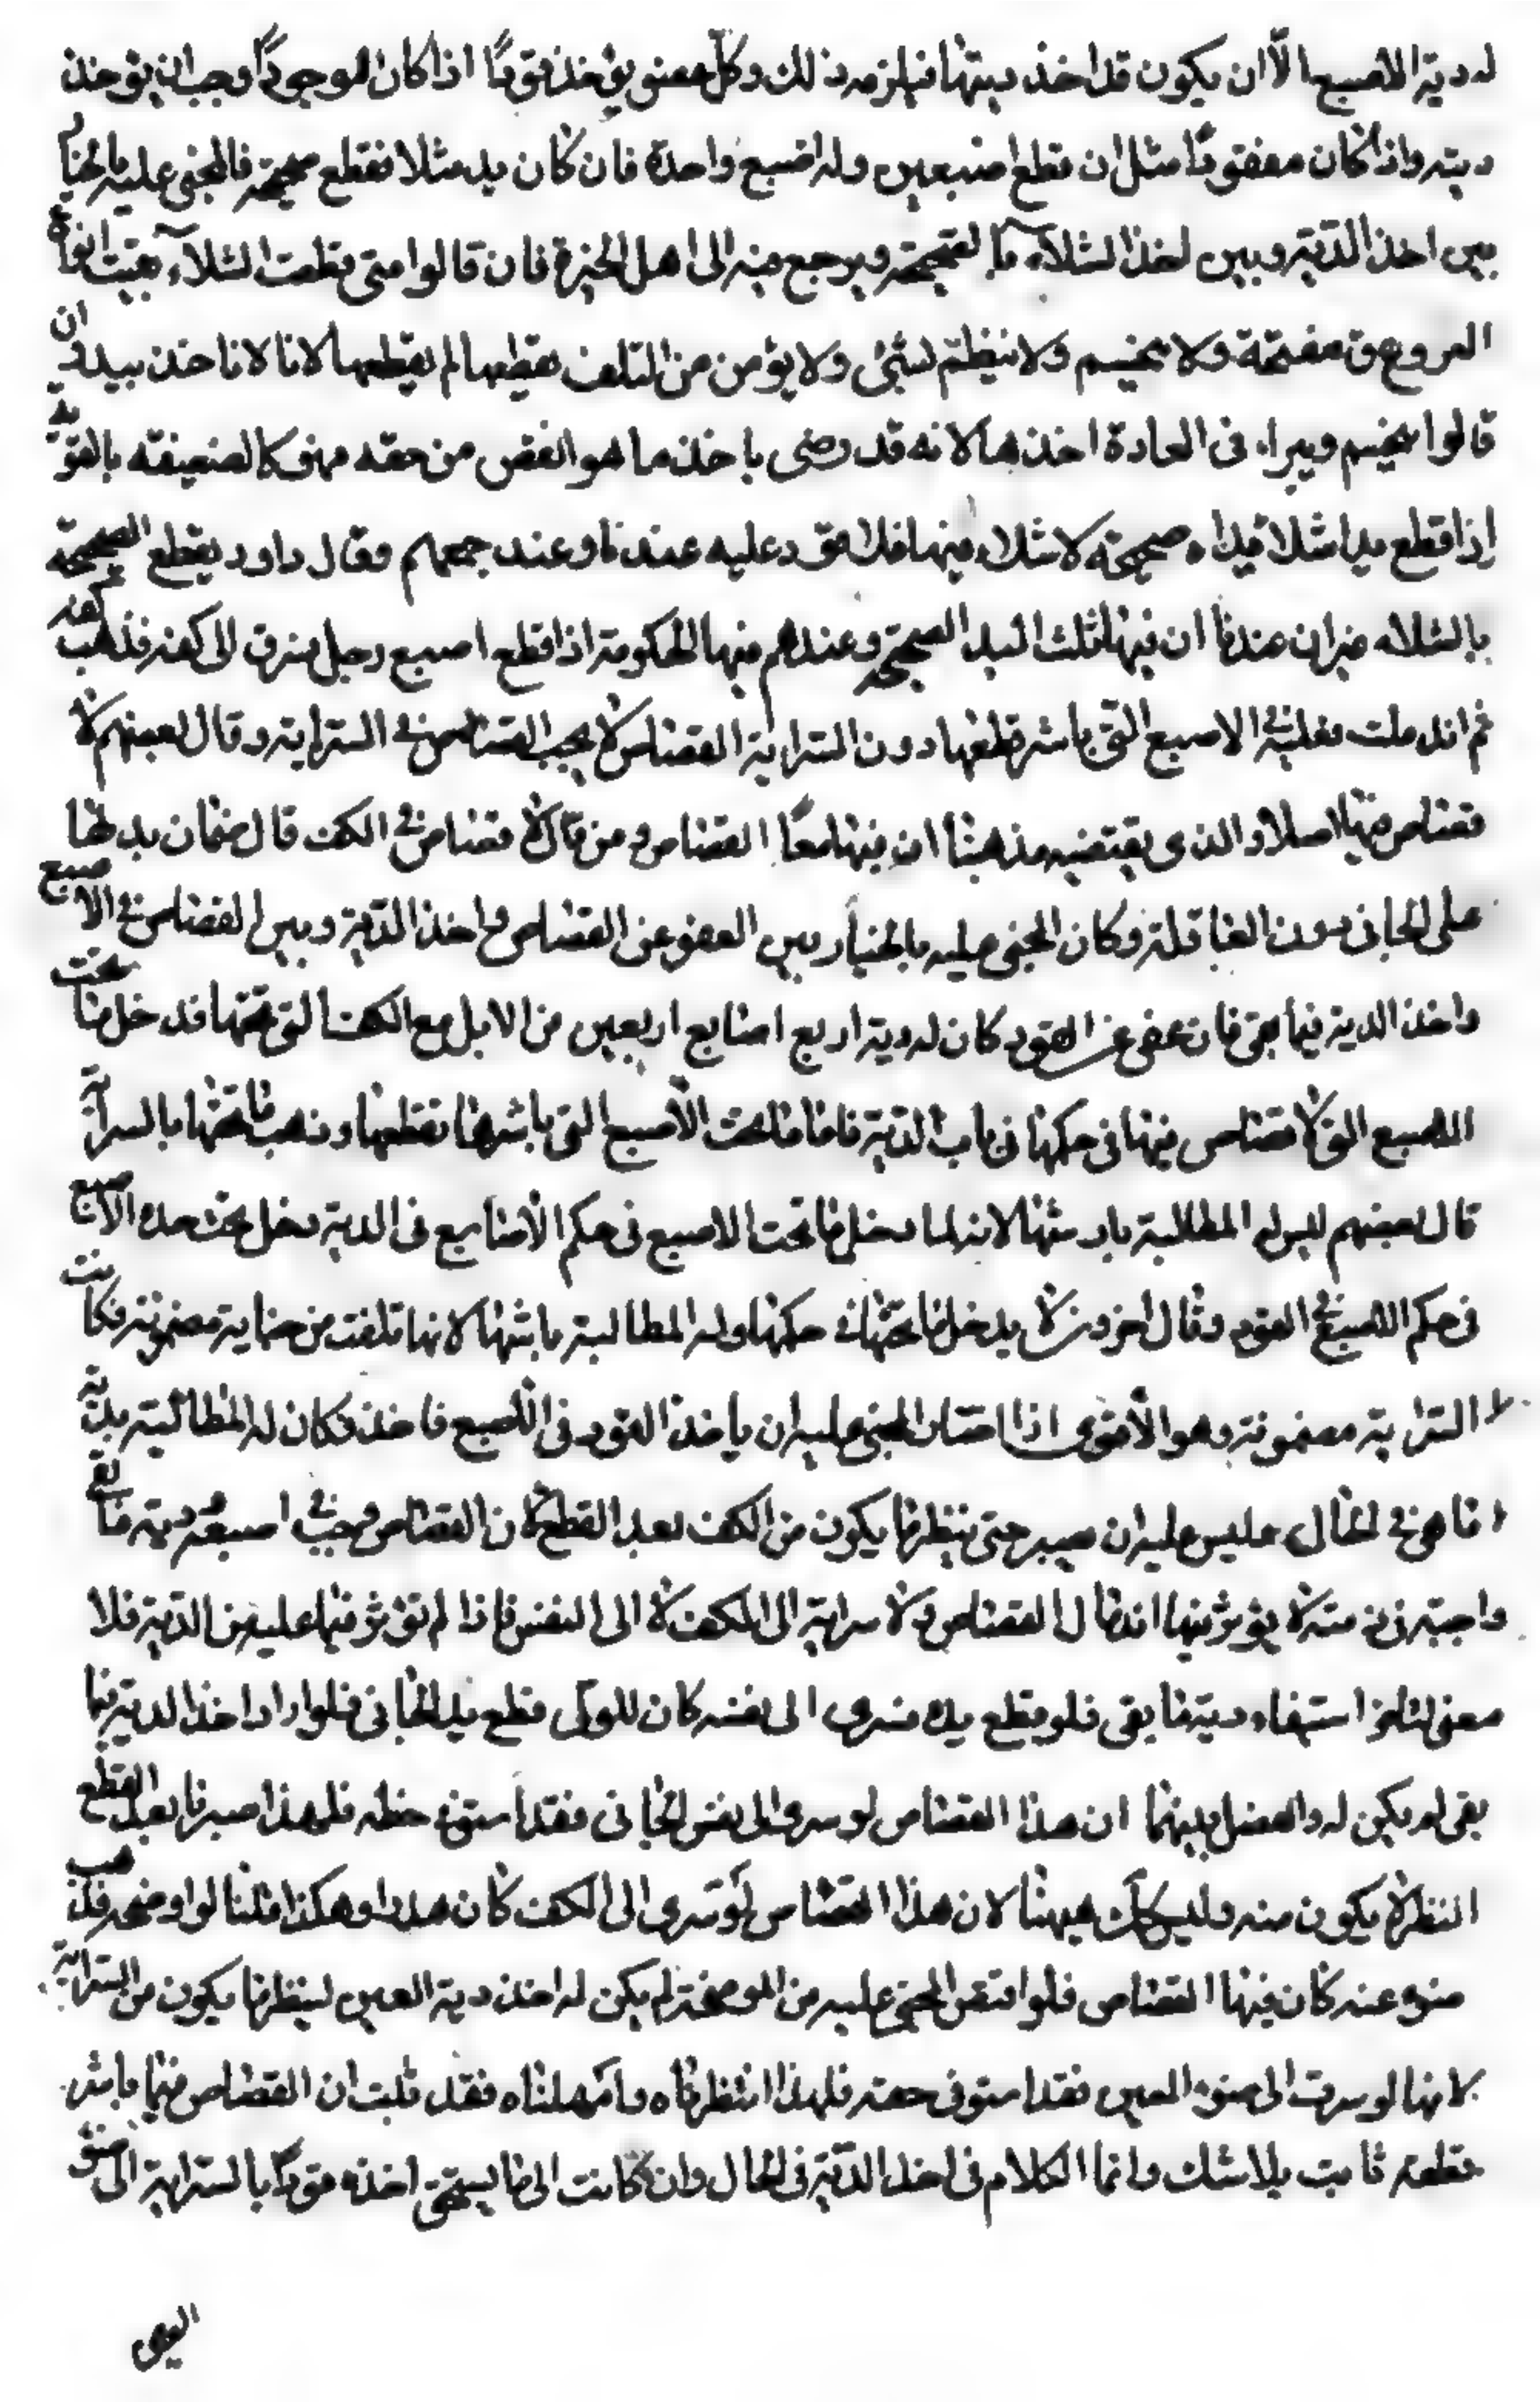 له دية الاصبع الا ان يكون قد اخذ ديتها فيلزمه ذلك وكل عضو يؤخذ قودًا اذا كان الموجودًا وجب ان يؤخذ
ديته واذا كان مفقودًا مثل ان قطع اصبعين وله اصبع واحدة فان كان يد مثلا فقطع صحيحة فالمجنى عليه بالخيار
بين اخذ الدية وبين اخذ الشلاء بالصحيحة ويرجع فيه الى اهل الخبرة فان قالوا متى قطعت الشلاء بقيت افواه
العروق مفتحة ولا ينحسم ولا ينظم لشئ ولا يؤمن من التلف بقطعها لم يقطعها لانا لا ناخذ بيد وان
قالوا ينحسم ويبراء فى العادة اخذها لانه قد رضى باخذ ما هو انقص من حقه فهو كالضعيفة بالقوية
اذا قطع يدا شلاء ويداه صحيحة لا شلاء فيها فلا قود عليه عندنا وعند جميعهم وقال داود يقطع الصحيحة
بالشلاء غير ان عندنا ان فيها ثلث اليد الصحيحة وعندهم فيها الحكومة اذا قطع اصبع رجل فسرق الى كفه فذهب كفه
ثم اندملت فعليه فى الاصبع التى باشر قطعها دون السراية القصاص لا يجب القصاص فى السراية وقال بعضهم لا
قصاص فيها اصلا والذى يقتضيه مذهبنا ان فيهما معًا القصاص ومن قال لا قصاص فى الكف قال ضمان يدلها
على الجانى دون العاقلة وكان المجنى عليه بالخيار بين العفو عن القصاص واخذ الدية وبين القصاص فى الاصبع
واخذ الدية فيما بقى فان عفى عن القود كان له دية اربع اصابع اربعين من الابل مع الكف التى تحتها فدخل ما تحت
الاصبع التى لا قصاص فيها فى حكمها فى باب الدية فاما ما تحت الاصبع التى باشرها بقطعها وذهب ما تحتها بالسراية
قال بعضهم ليس له المطالبة بارشها لانه لما دخل ما تحت الاصبع فى حكم الاصابع فى الدية دخل تحت هذه الاصبع
فى حكم الاصبع فى القود وقال اخرون لا يدخل ما تحتها فى حكمها وله المطالبة بارشها لانها تلفت من جناية مضمونة فكانت
السراية مضمونة وهو الاقوى اذا اختار المجنى عليه ان ياخذ القود فى الاصبع فاخذ وكان له المطالبة بدية
ما هو فى الحال وليس عليه ان يصبر حتى ينظر ما يكون من الكف بعد القطع كان القصاص وجب فى اصبعه ودية ما بقى
واجبة فى ذمته لا يؤثر فيها اندمال القصاص ولا سراية الى الكف لا الى النفس فاذا لم تؤثر فيما عليه من الدية فلا
معنى لتاخر استيفاء دية ما بقى فلو قطع يده فسرى الى نفسه كان للولى قطع يد الجانى فلو اراد اخذ الدية فيما
بقى لم يكن له والفصل بينهما ان هذا القصاص لو سرى الى نفس الجانى فقد استوفى حقه فلهذا صبرنا بعد القطع
النظر لا يكون منه وليس كك هيهنا لان هذا القصاص لو سرى الى الكف كان هدرا وهكذا قلنا لو اوضحه فذهب
ضوء عينه كان فيها القصاص فلو اقتص المجنى عليه من الموضحة لم يكن له اخذ دية العين لينظر ما يكون من السراية
لانها لو سرت الى ضوء العين فقد استوفى حقه فلهذا انتظرناه وامهلناه فقد ثبت ان القصاص فيما باشر
قطعه ثابت بلا شك وانما الكلام فى اخذ الدية فى الحال وان كانت الى ما يستحق اخذه قودًا بالسراية الى ضوء
العين